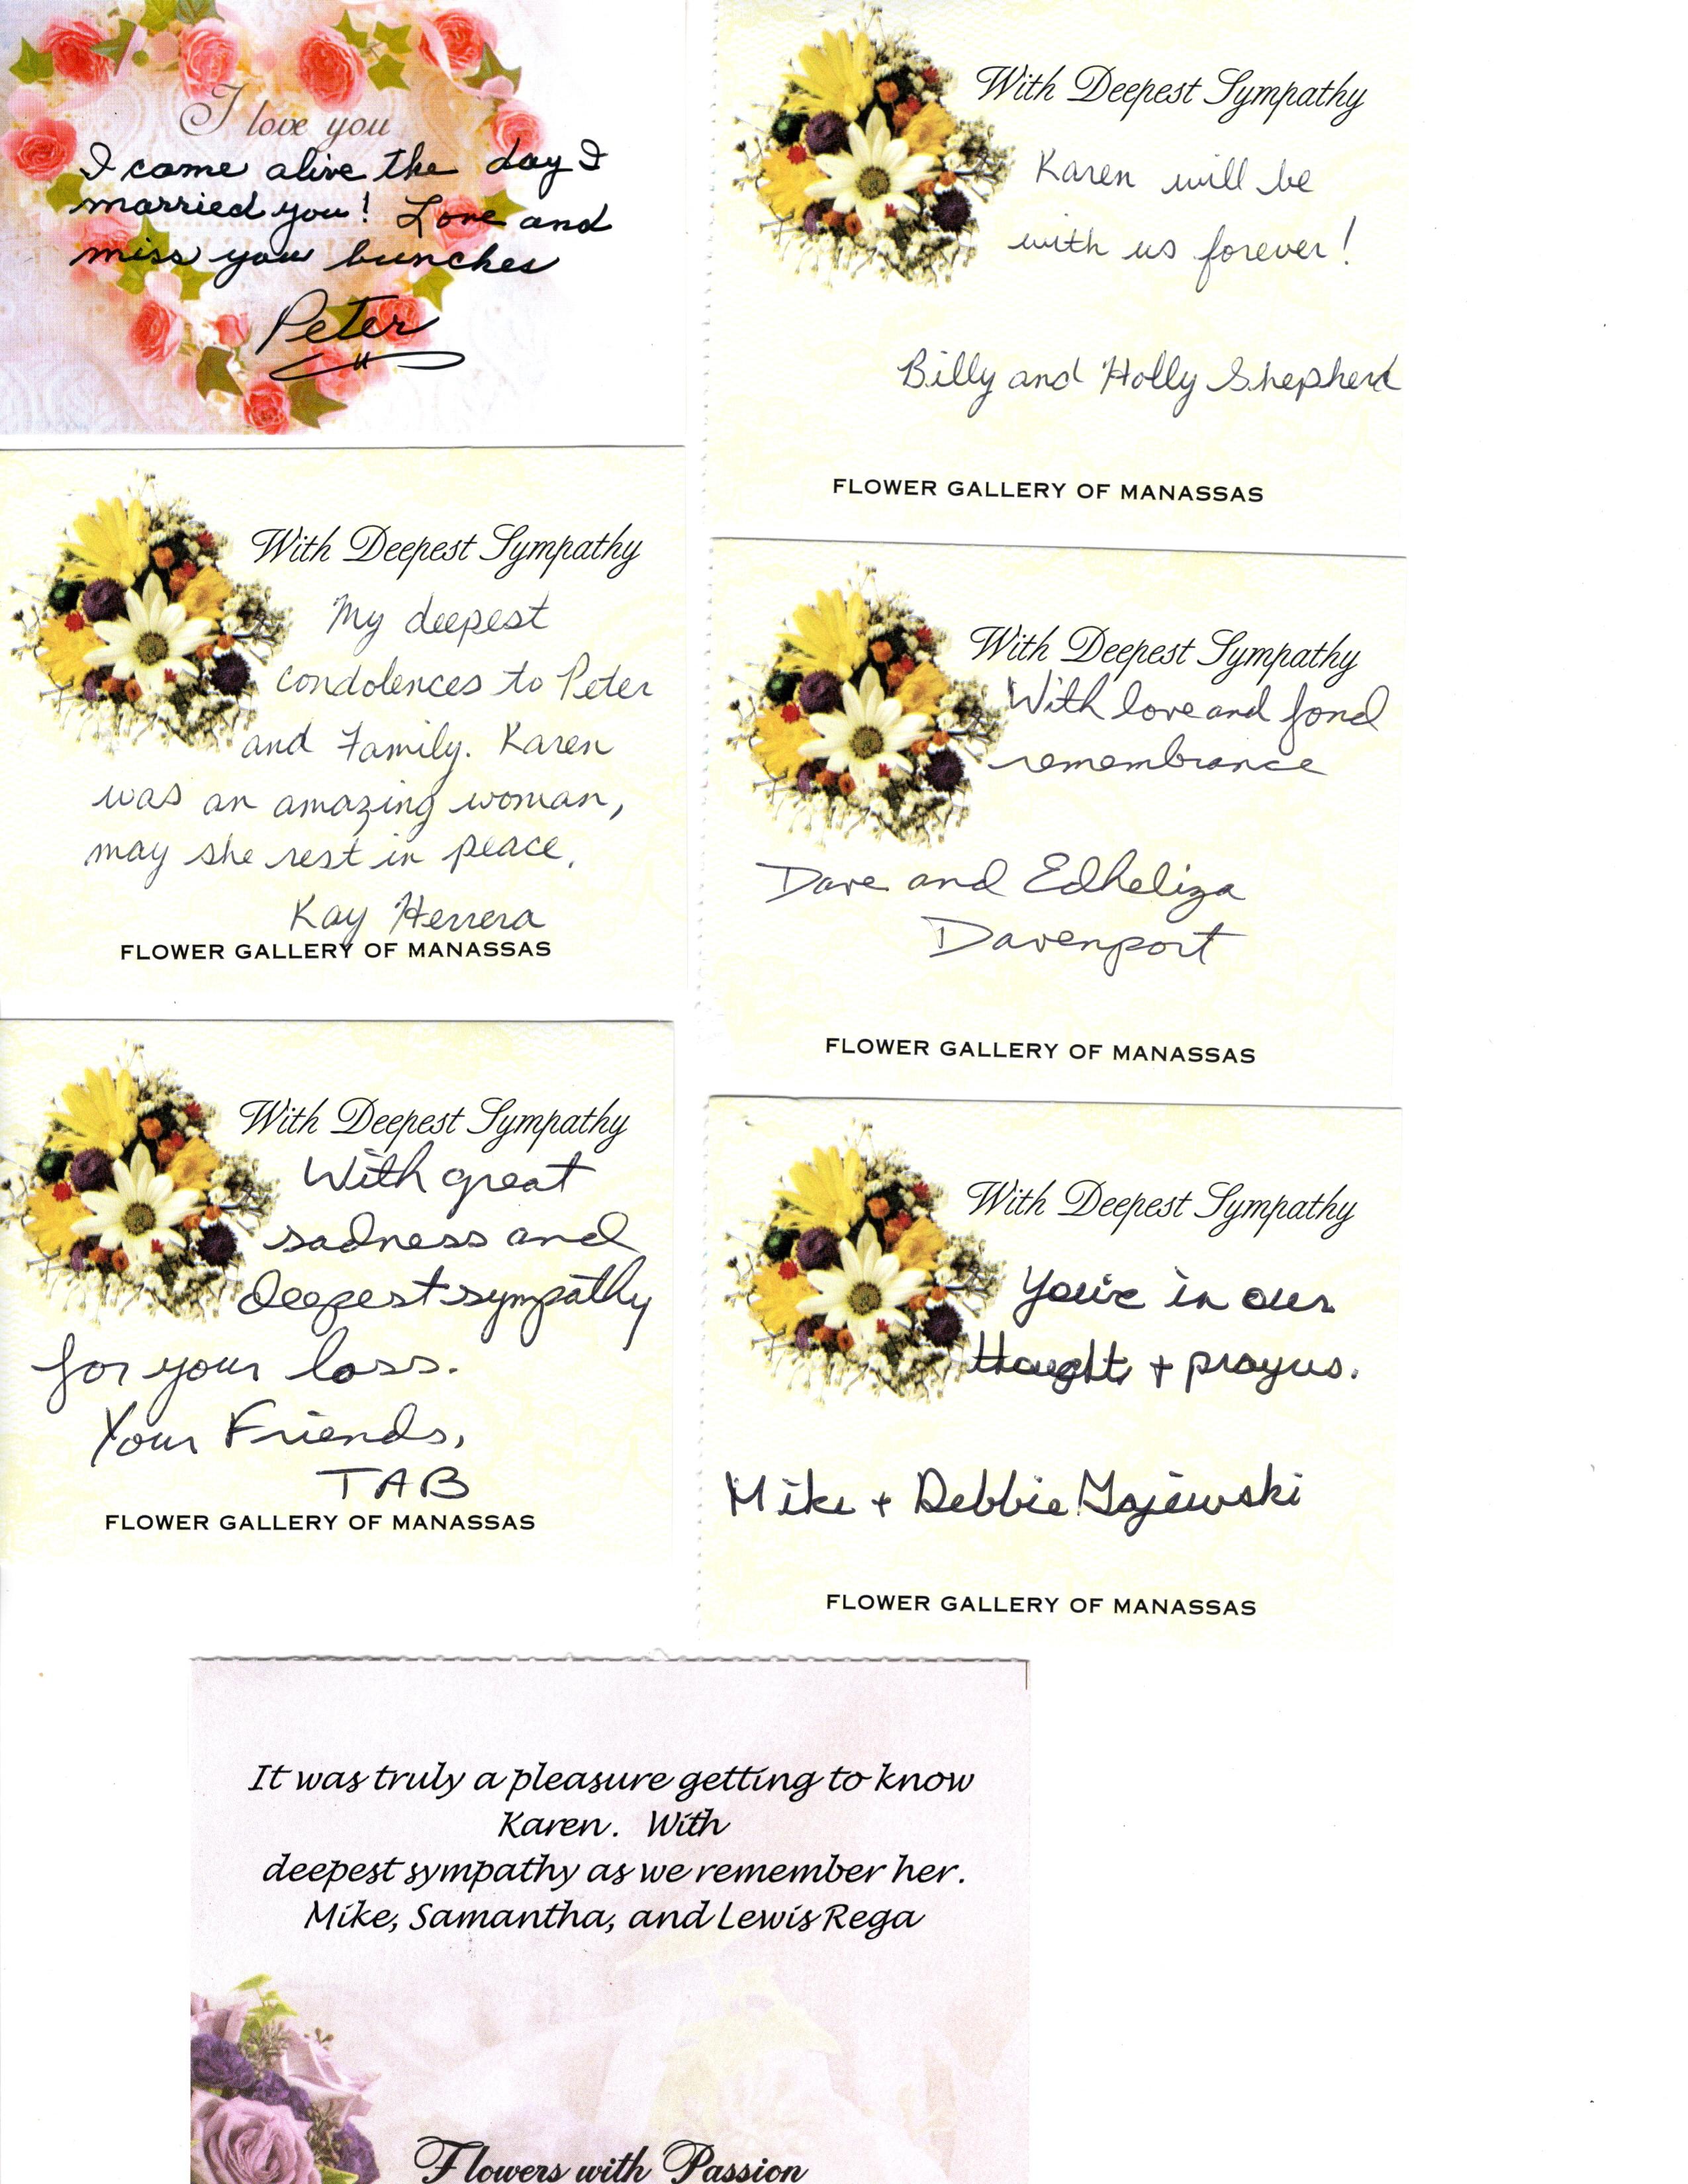 I love you
I came alive the day I
married you! Love and
miss you bunches
Peter
With Deepest Sympathy
Karen will be
with us forever!
Billy and Holly Shepherd
FLOWER GALLERY OF MANASSAS
With Deepest Sympathy
My deepest
condolences to Peter
and Family. Karen
was an amazing woman,
may she rest in peace.
Kay Herrera
FLOWER GALLERY OF MANASSAS
With Deepest Sympathy
With love and fond
remembrance
Dave and Edheliza
Davenport
FLOWER GALLERY OF MANASSAS
With Deepest Sympathy
With great
sadness and
deepest sympathy
for your loss.
Your Friends,
TAB
FLOWER GALLERY OF MANASSAS
With Deepest Sympathy
You're in our
thoughts + prayers.
Mike + Debbie Gajewski
FLOWER GALLERY OF MANASSAS
It was truly a pleasure getting to know
Karen. With
deepest sympathy as we remember her.
Mike, Samantha, and Lewis Rega
Flowers with Passion